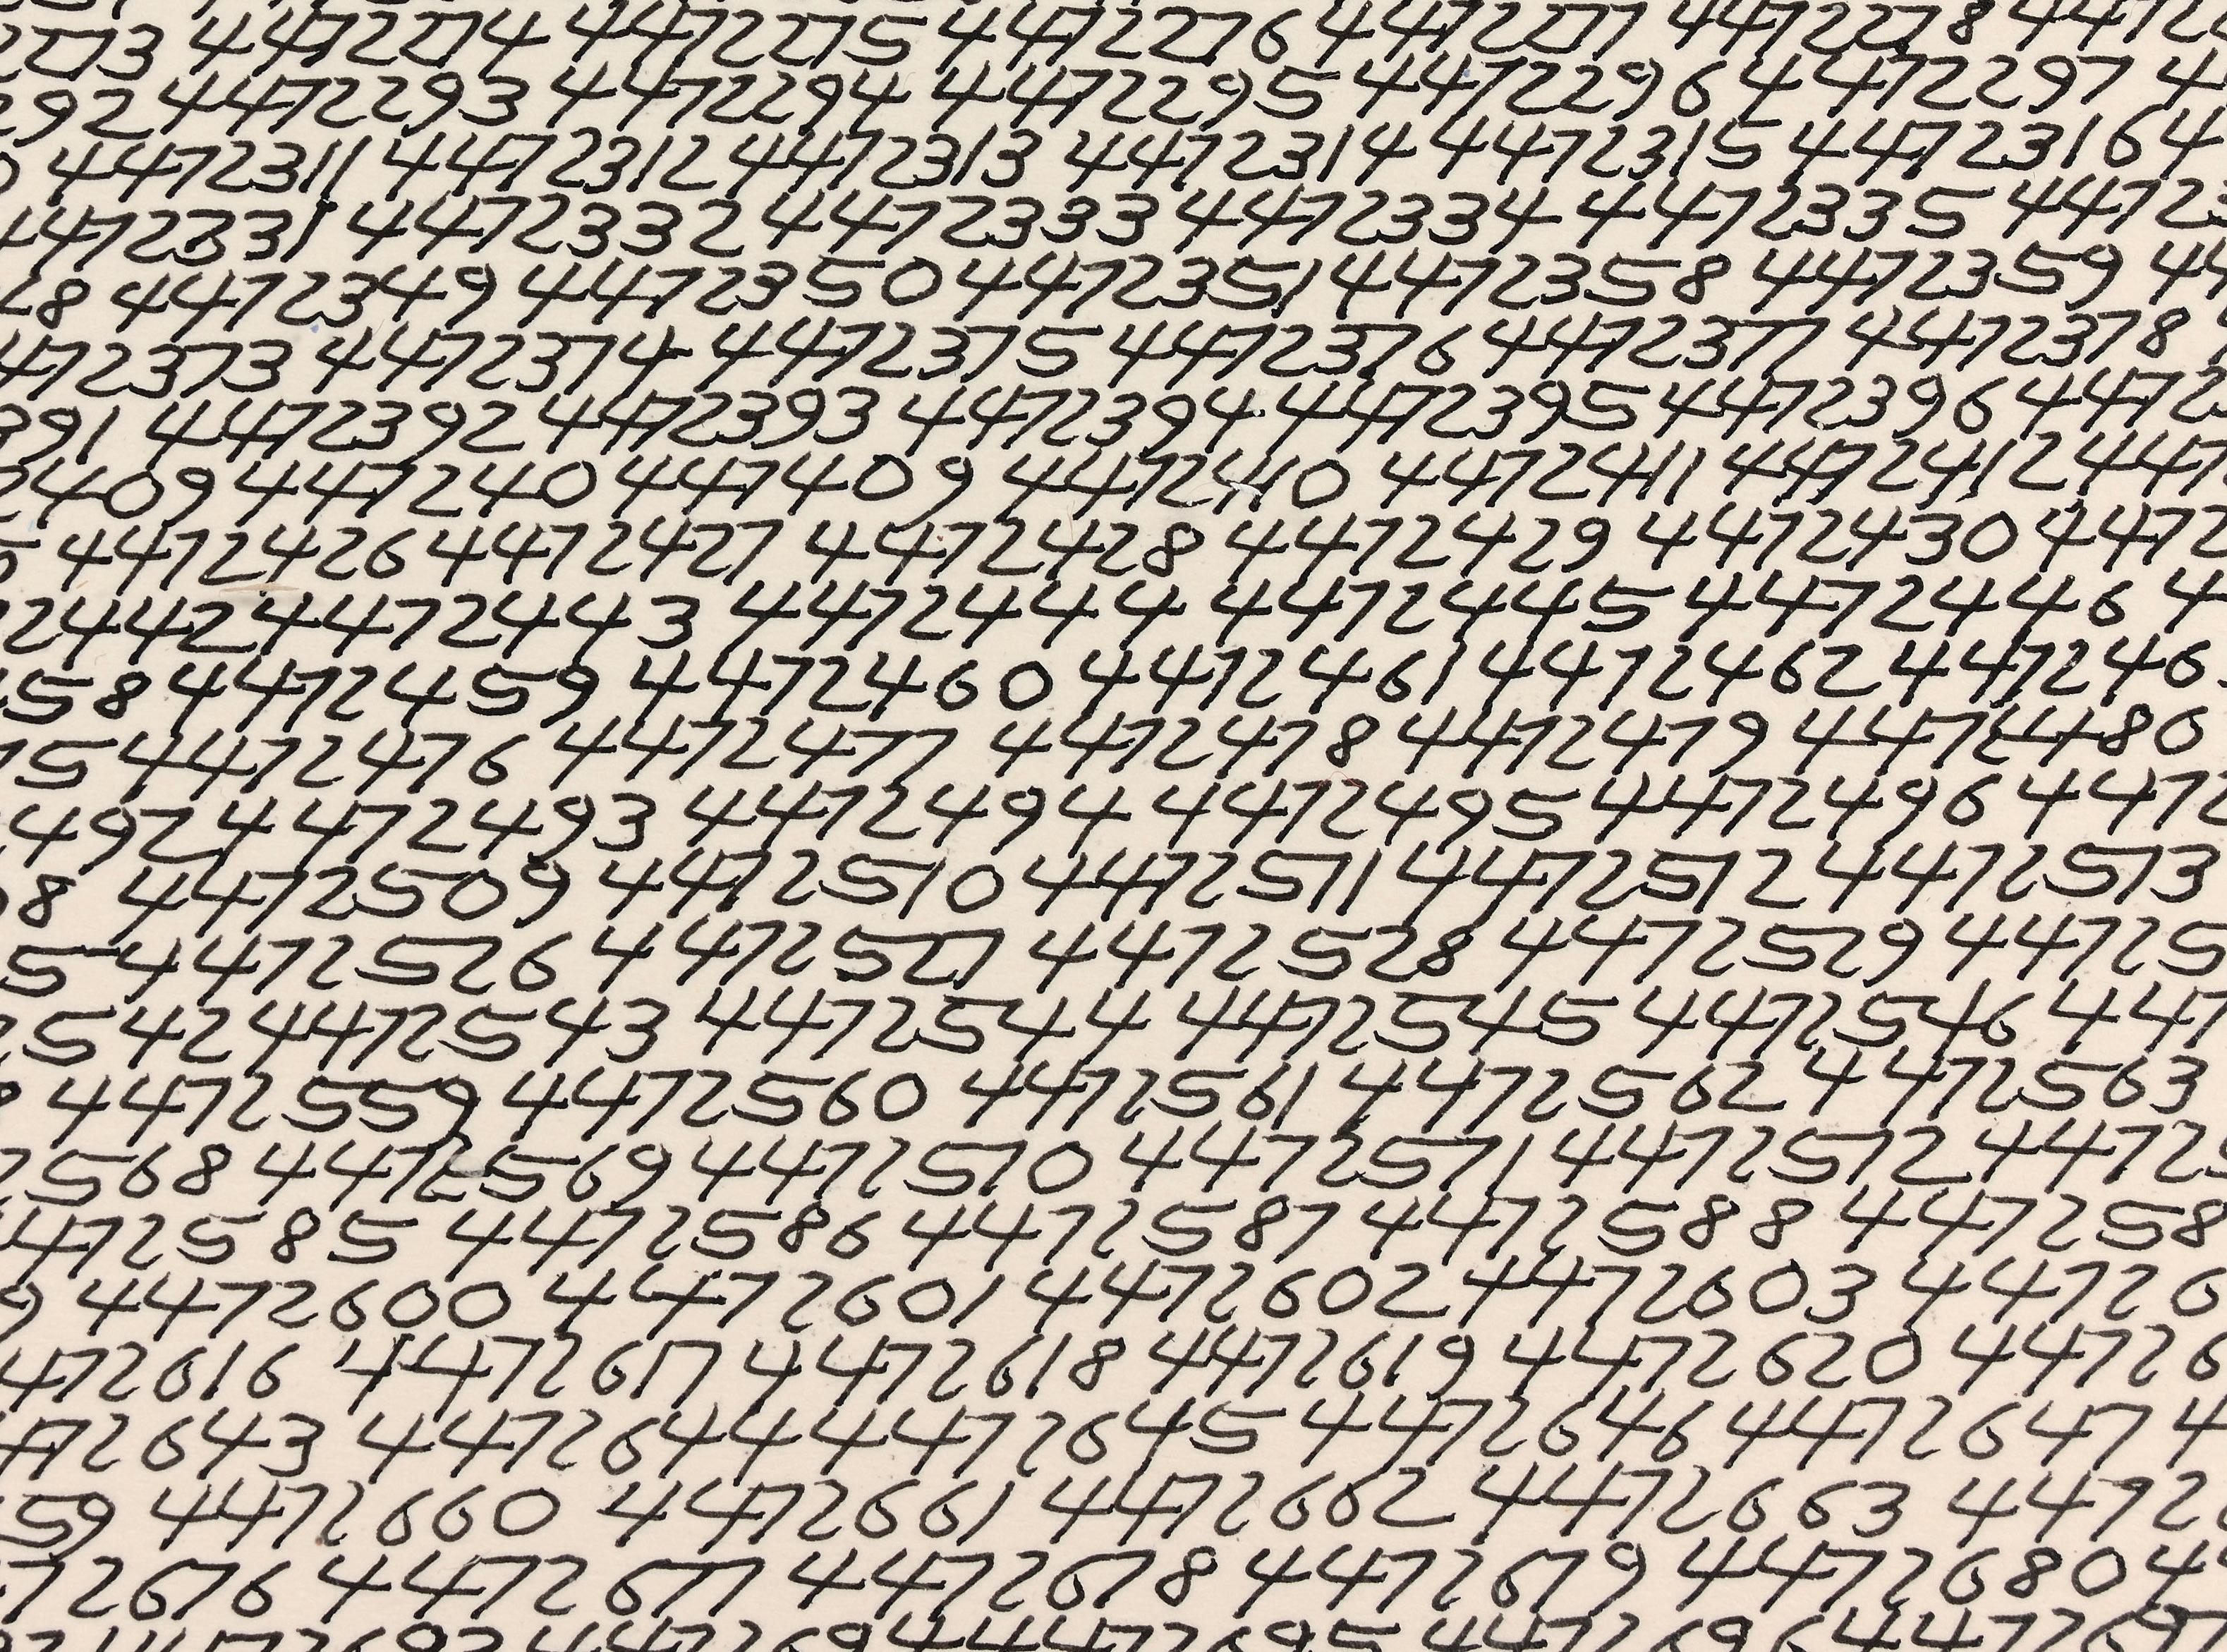 2273 4472274 4472275 4472276 4472277 4472278 4472
292 4472293 4472294 4472295 4472296 4472297 4
0 4472311 4472312 4472313 4472314 4472315 4472316 4
4472331 4472332 4472333 4472334 4472335 4472
48 4472349 4472350 4472351 4472358 4472359 44
472373 4472374 4472375 4472376 4472377 4472378
391 4472392 4472393 4472394 4472395 4472396 4472
2409 447240 447409 4472410 4472411 4472412 447
5 4472426 4472427 4472428 4472429 4472430 4472
2442 4472443 4472444 4472445 4472446 4
58 4472459 4472460 4472461 4472462 447246
75 4472476 4472477 4472478 4472479 4472480
492 4472493 4472494 4472495 4472496 4472
08 4472509 4472510 4472511 4472512 4472513
5 4472526 4472527 4472528 4472529 44725
2542 4472543 4472544 4472545 4472546 447
4472559 4472560 4472561 4472562 4472563
2568 4472569 4472570 4472571 4472572 4472
472585 4472586 4472587 4472588 447258
9 4472600 4472601 4472602 4472603 44726
472616 4472617 4472618 4472619 4472620 44726
472643 4472644 4472645 4472646 4472647 4
59 4472660 4472661 4472662 4472663 4472
72676 4472677 4472678 4472679 4472680 4